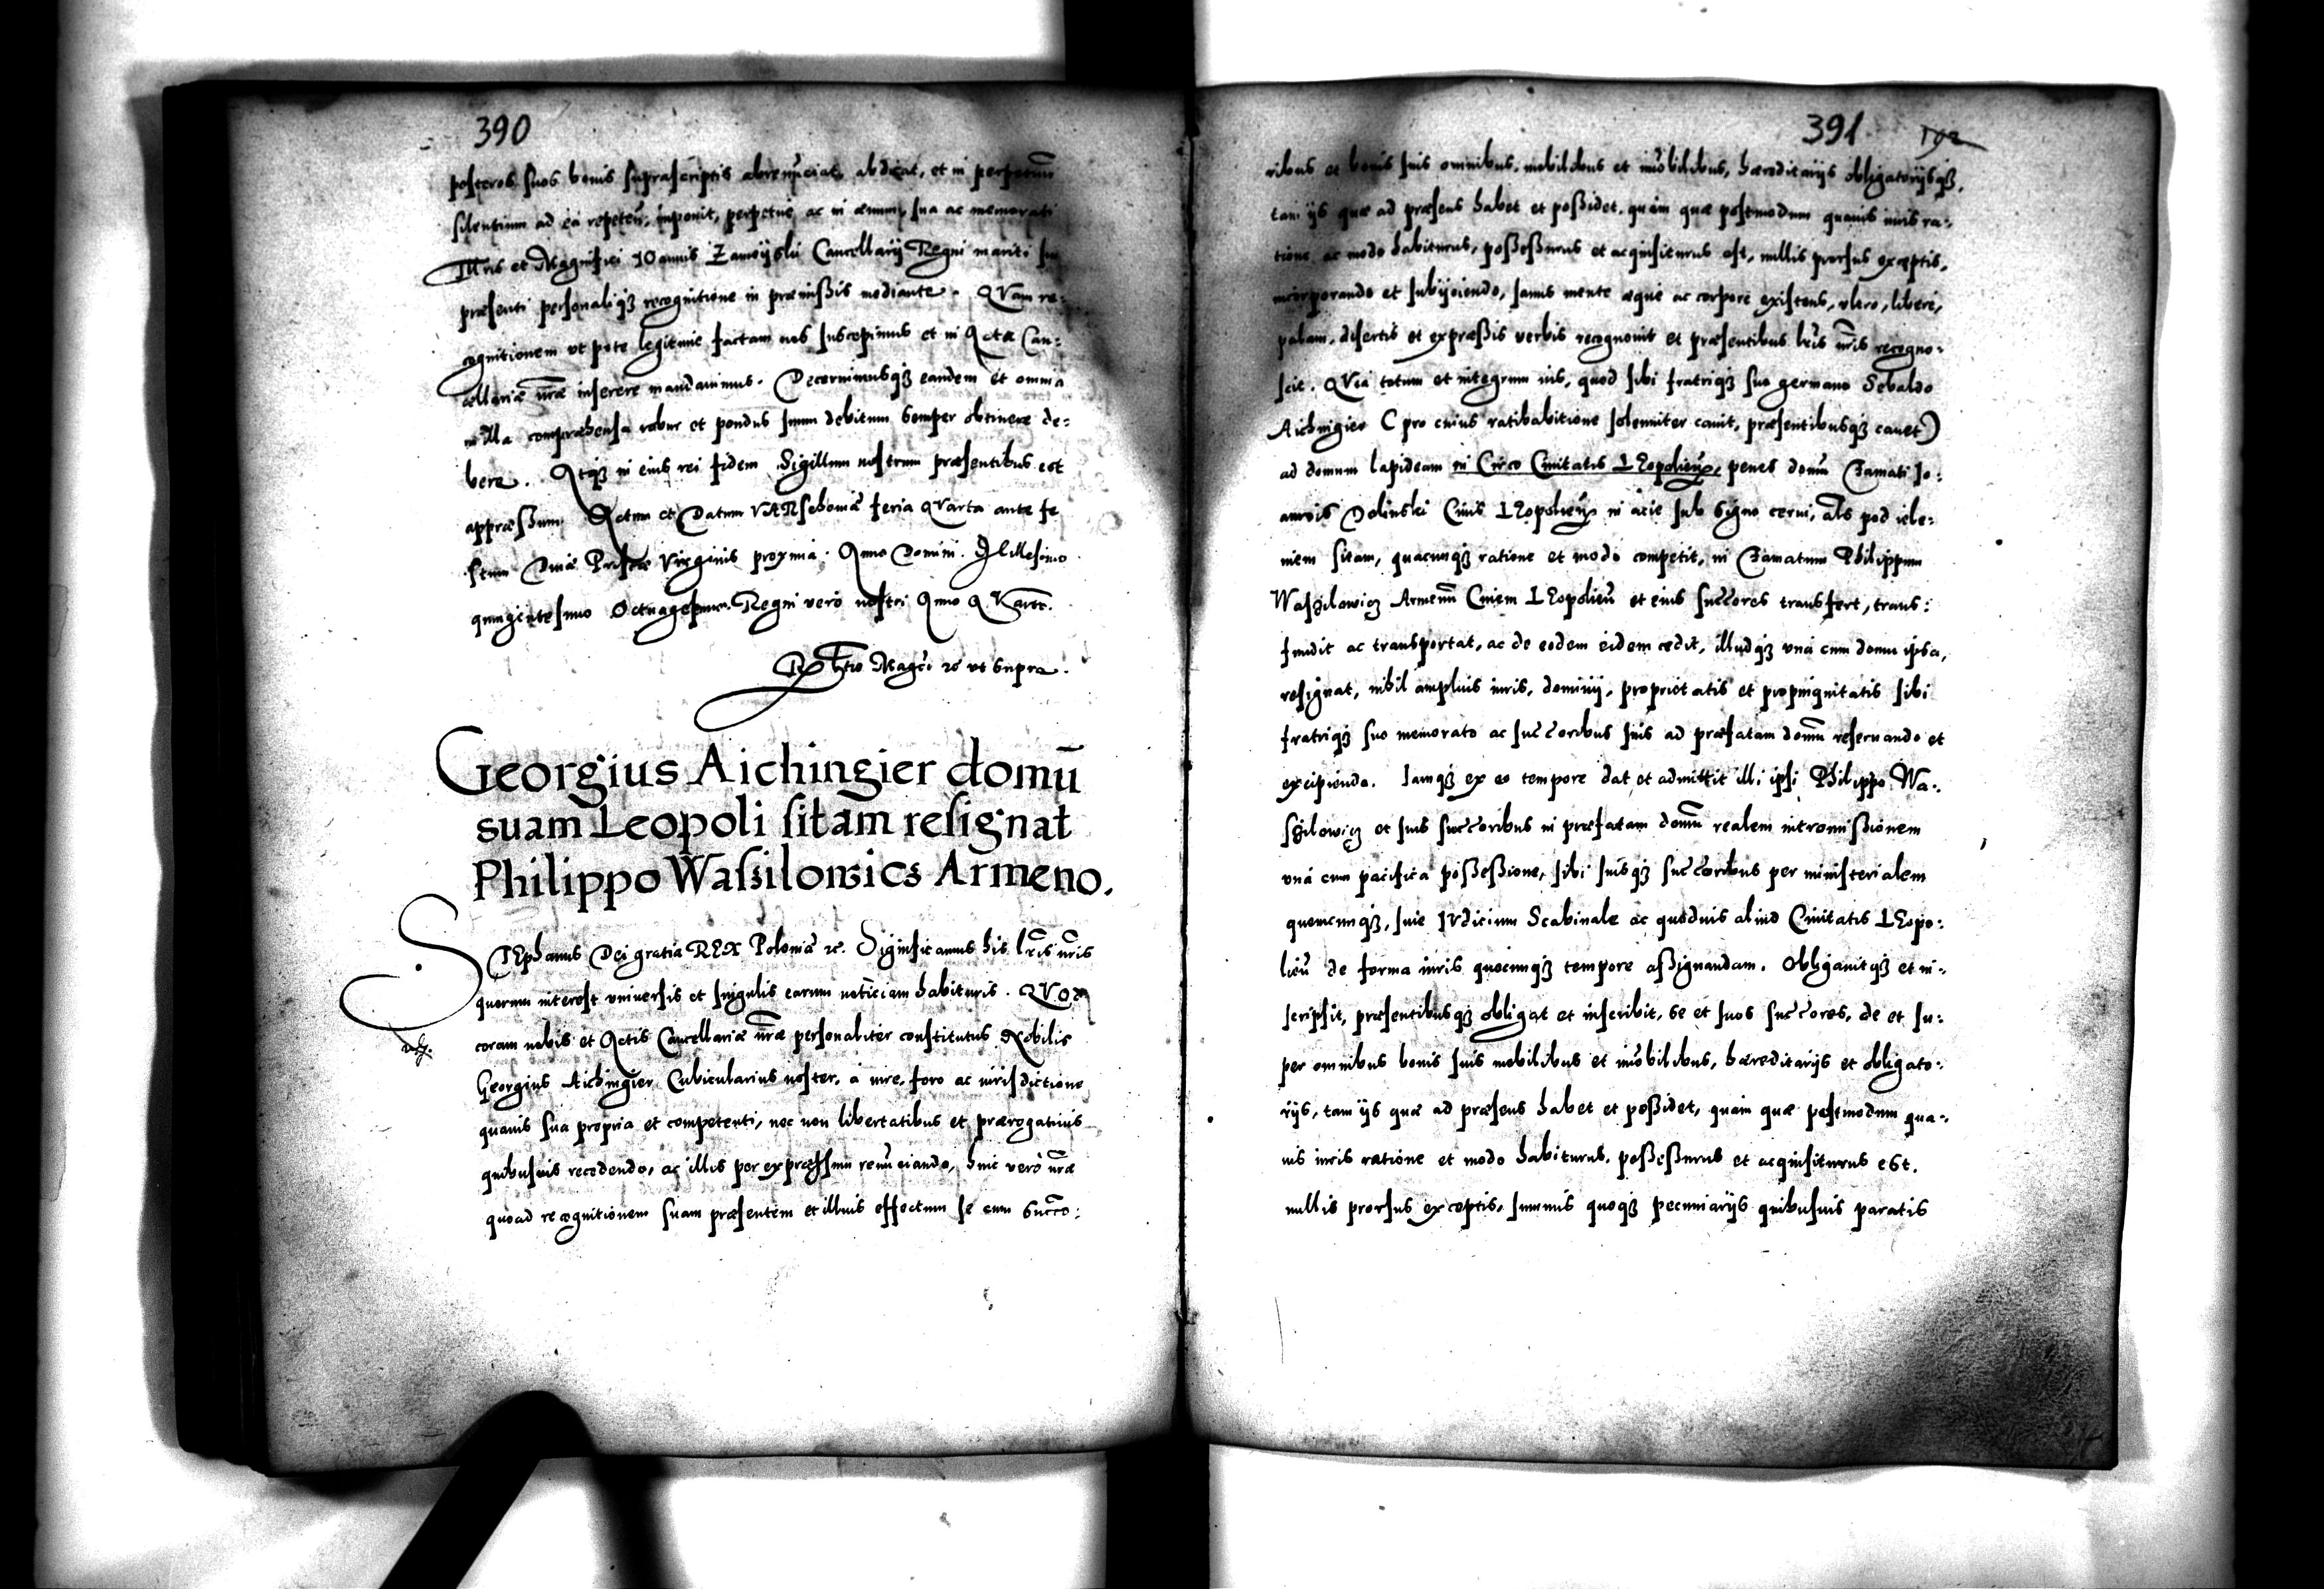 390
posteros suos bonis suprascriptis abrenūciat, abdicat, et in perpetuū
silentium ad ea repeteñ, imponit, perpetue ac in ævum, sua ac memorati
Illris et Magnifici IOannis Zamoyski Cancellarij Regni mariti sui
præsenti personaliq3 recognitione in præmißis mediante. QVam re:
cognitionem vt pote legitime factam nos suscepimus et in Acta Can:
cellariæ nr̄æ inserere mandauimus. Decernimusq3 eandem et omnia
in illa compræhensa robur et pondus suum debitum semper obtinere de:
bere. Atq3 in eius rei fidem Sigillum nostrum præsentibus est
appræßum. Actum et Datum VARschouiæ feria QVarta ante fe
stum Diuæ Priscæ Virginis proxima. Anno Domini. Millesimo
quingentesimo Octuagesimo. Regni vero nostri Anno QVarto.
Rtio Magci rc vt supra.
Georgius Aichingier domū
suam Leopoli sitam̄ resignat
Philippo Wassilowics Armeno.
STEphanus Dei gratia REX Poloniæ rc. Significamus his lr̄is nr̄is
quorum interest vniuersis et singulis earum noticiam habituris. QVOD
coram nobis et Actis Cancellariæ nr̄æ personaliter constitutus Nobilis
Georgius Aichingier Cubicularius noster, a iure, foro ac iurisdictione
quauis sua propria et competenti, nec non libertatibus et prærogatiuis
quibusuis recedendo, ac illis per expræssum renūciando, huic verò nr̄æ
quoad recognitionem suam præsentem et illius effectum se cum succo:
391 192
ribus et bonis suis omnibus, mobilibus et im̄obilibus, hæreditarijs obligatorijsq3,
tam ijs quæ ad præsens habet et poßidet, quàm quæ postmodum quauis iuris ra:
tione ac modo habiturus, poßeßurus et acquisiturus est, nullis prorsus exceptis,
incorporando et subijciendo, sanus mente æque ac corpore existens, vltro, libere,
palam, disertis et expræßis verbis recognouit et præsentibus lr̄is nr̄is recogno:
scit. QVia totum et integrum ius, quod sibi fratriq3 suo germano Sebaldo
Aichingier (pro cuius ratihabitione solenniter cauit, præsentibusq3 cauet)
ad domum lapideam in Circo Ciuitatis LEopolieñ, penes domū Famati Jo:
annis Dolinski Ciuis LEopolieñ in acie sub signo cerui, als pod iele:
niem sitam, quacunq3 ratione et modo competit, in Famatum Philippum
Waszilowicz Armenū Ciuem LEopolieñ et eius succores transfert, trans:
fundit ac transportat, ac de eodem eidem cedit, illudq3 vnà cum domu ipsa,
resignat, nihil amplius iuris, dominij, proprietatis et propinquitatis sibi
fratriq3 suo memorato ac succoribus suis ad præfatam domū reseruando et
excipiendo. Iamq3 ex eo tempore dat et admittit illi ipsi Philippo Wa:
szilowicz et suis succoribus in præfatam domū realem intromißionem
vnà cum pacifica poßeßione, sibi suisq3 succoribus per ministerialem
quemcunq3, siue IVdicium Scabinale ac quoduis aliud Ciuitatis LEopo:
lieñ de forma iuris quocunq3 tempore aßignandam. Obligauitq3 et in:
scripsit, præsentibusq3 obligat et inscribit, se et suos succores, de et su:
per omnibus bonis suis mobilibus et im̄obilibus, hæreditarijs et obligato:
rijs, tam ijs quæ ad præsens habet et poßidet, quàm quæ postmodum qua:
uis iuris ratione et modo habiturus, poßeßurus et acquisiturus est,
nullis prorsus exceptis, summis quoq3 pecuniarijs quibusuis paratis